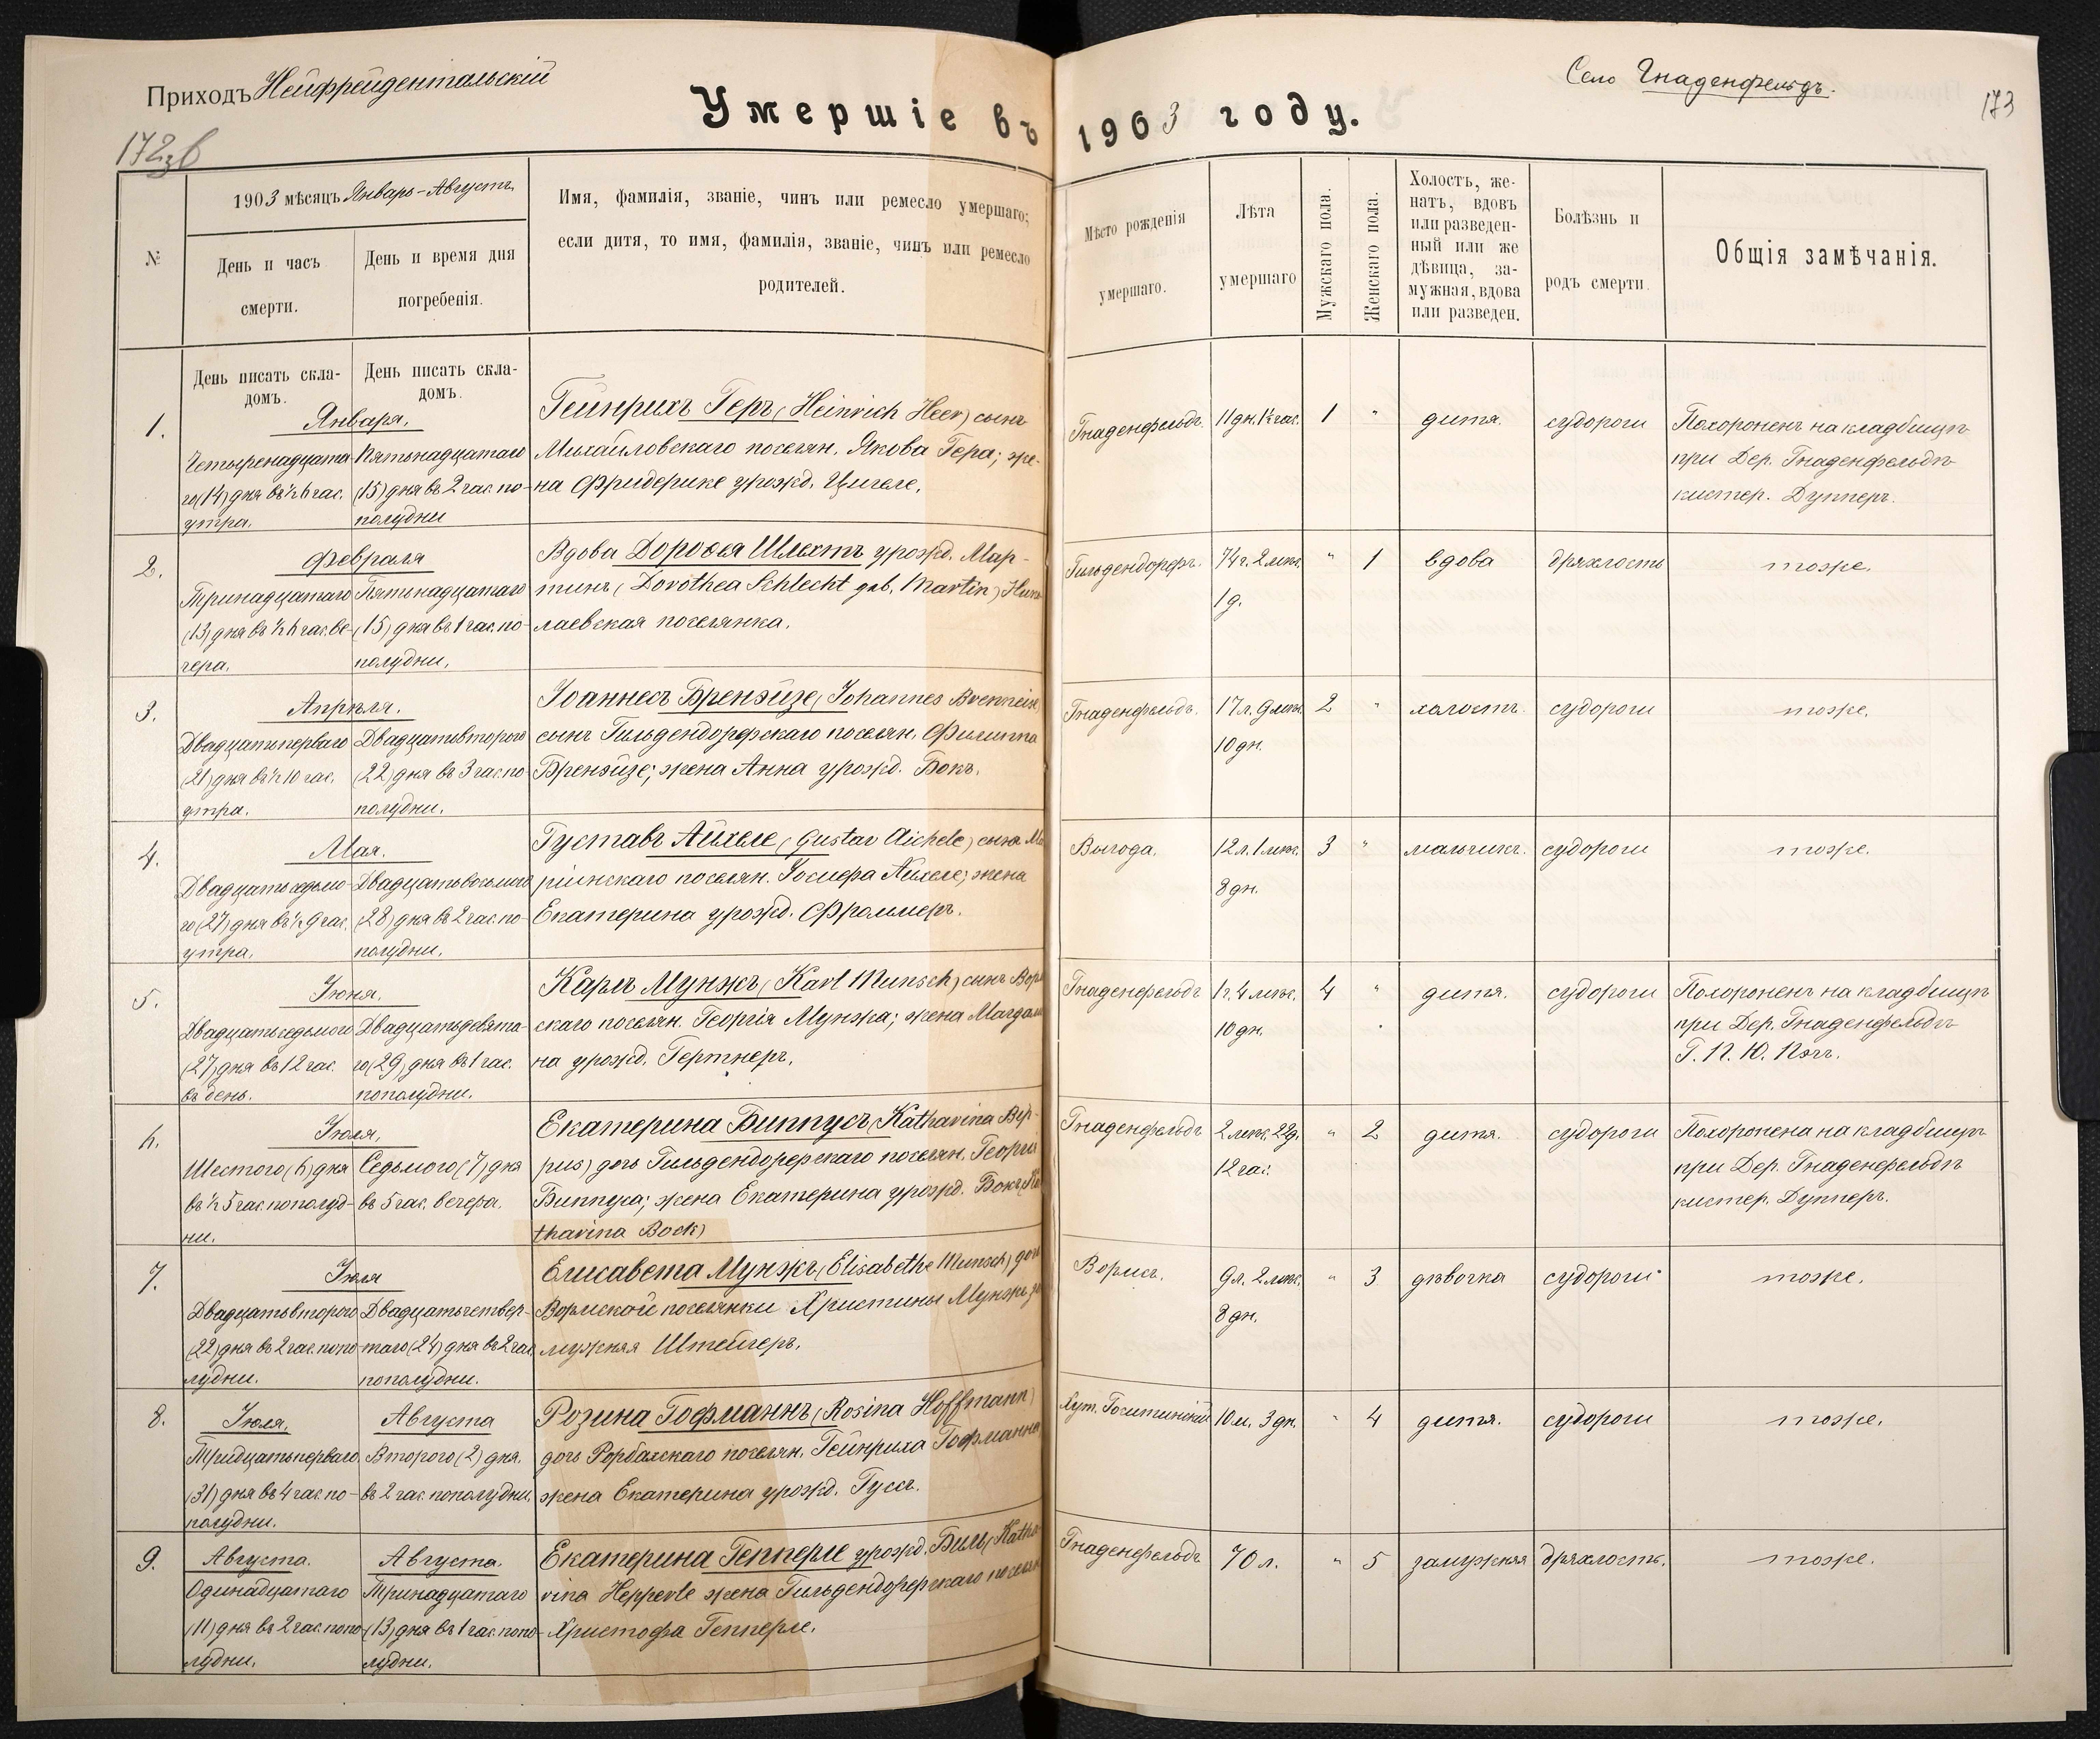 Приходъ Нейфрейдентальскій
Умершіе въ 1903 году.
Село Гнаденфельдъ.
172зв
173
№
1903 мѣсяцъ Январь-Августъ
День и часъ
смерти.
День и время дня
погребенія.
Имя, фамилія, званіе, чинъ или ремесло умершаго;
если дитя, то имя, фамилія, званіе, чинъ или ремесло
родителей.
Мѣсто рожденія
умершаго.
Лѣта
умершаго
Мужскаго пола.
Женскаго пола.
Холостъ, же-
натъ, вдовъ
или разведен-
ный или же
дѣвица, за-
мужная, вдова
или разведен.
Болѣзнь и
родъ смерти.
Общія замѣчанія.
День писать скла-
домъ.
День писать скла-
домъ.
1.
Января.
Четыренадцата-
го (14) дня въ ½ 6 час.
утра.
Пятьнадцатаго
(15) дня въ 2 час. по-
полудни
Гейнрихъ Геръ (Heinrich Heer) сынъ
Михайловскаго поселян. Якова Гера; же-
на Фридерике урожд. Цигеле.
Гнаденфельдъ.
11 дн. 1½ час.
1
"
дитя.
судороги
Похороненъ на кладбищѣ
при Дер. Гнаденфельдъ
кистер. Дупперъ.
2.
Февраля
Тринадцатаго
(13) дня въ ½ 6 час. ве-
чера.
Пятьнадцатаго
(15) дня въ 1 час. по-
полудни.
Вдова Доровея Шлехтъ урожд. Мар-
тинъ (Dorothea Schlecht geb. Martin) Нико
лаевская поселянка.
Гильдендорфъ.
74 г. 2 мѣс.
1 д.
"
1
вдова
дряхлость
тоже.
3.
Апрѣля.
Двадцатьперваго
(21) дня въ ½ 10 час.
утра.
Двадцатьвтораго
(22) дня въ 3 час. по-
полудни.
Іоаннесъ Бренэйзе (Johannes Brenneise)
сынъ Гильдендорфскаго поселян. Филиппа
Бренэйзе; жена Анна урожд. Бокъ.
Гнаденфельдъ.
17 л. 9 мѣс.
10 дн.
2
"
холостъ.
судороги
тоже.
4.
Мая.
Двадцатьседьмо-
го (27) дня въ ½ 9 час.
утра.
Двадцатьвосьмаго
(28) дня въ 2 час. по-
полудни.
Густавъ Айхеле (Gustav Aichele) сынъ Ма
ріинскаго поселян. Іосифа Айхеле; жена
Екатерина урожд. Фроммеръ.
Выгода.
12 л. 1 мѣс.
8 дн.
3
"
мальчикъ.
судороги
тоже.
5.
Іюня.
Двадцатьседьмого
(27) дня въ 12 час.
въ день.
Двадцатьдевята-
го (29) дня въ 1 час.
пополудни.
Карлъ Мунжъ (Karl Munsch) сынъ Ворм
скаго поселян. Георгія Мунжа; жена Магдале
на урожд. Гертнеръ.
Гнаденфельдъ
1 г. 4 мѣс.
10 дн.
4
"
дитя.
судороги
Похороненъ на кладбищѣ
при Дер. Гнаденфельдъ
Г. П. Ю. Пэчъ.
6.
Іюля.
Шестого (6) дня
въ ½ 5 час. пополуд-
ни.
Седьмого (7) дня
въ 5 час. вечера.
Екатерина Биппусъ (Katharina Bip-
pus) дочь Гильдендорфскаго поселян. Георгія
Биппуса; жена Екатерина урожд. Бокъ (Ka
tharina Bock)
Гнаденфельдъ
2 мѣс. 22 д.
12 час.
"
2
дитя.
судороги
Похоронена на кладбищѣ
при Дер. Гнаденфельдъ
кистер. Дупперъ.
7.
Іюля
Двадцатьвторого
(22) дня въ 2 час. попо-
лудни.
Двадцатьчетвер-
таго (24) дня въ 2 час.
пополудни.
Елисавета Мунжъ (Elisabethe Munsch) дочь
Вормской поселянки Христины Мунжъ за
мужняя Штейгеръ.
Вормсъ.
9 л. 2 мѣс.
8 дн.
"
3
дѣвочка
судороги
тоже.
8.
Іюля.
Тридцатьперваго
(31) дня въ 4 час. по-
полудни.
Августа
Второго (2) дня.
въ 2 час. пополудни.
Розина Гофманнъ (Rosina Hoffmann)
дочь Рорбахскаго поселян. Гейнриха Гофманна,
жена Екатерина урожд. Гусъ.
10 м. 3 дн.
"
4
дитя.
судороги
тоже.
9.
Августа.
Одинадцатаго
(11) дня въ 2 час. попо-
лудни.
Августа.
Тринадцатаго
(13) дня въ 1 час. попо-
лудни.
Екатерина Гепперле урожд. Биль (Katha-
rina Hepperle жена Гильдендорфскаго поселян
Христофа Гепперле.
Гнаденфельдъ
70 л.
"
5
замужняя
дряхлость.
тоже.